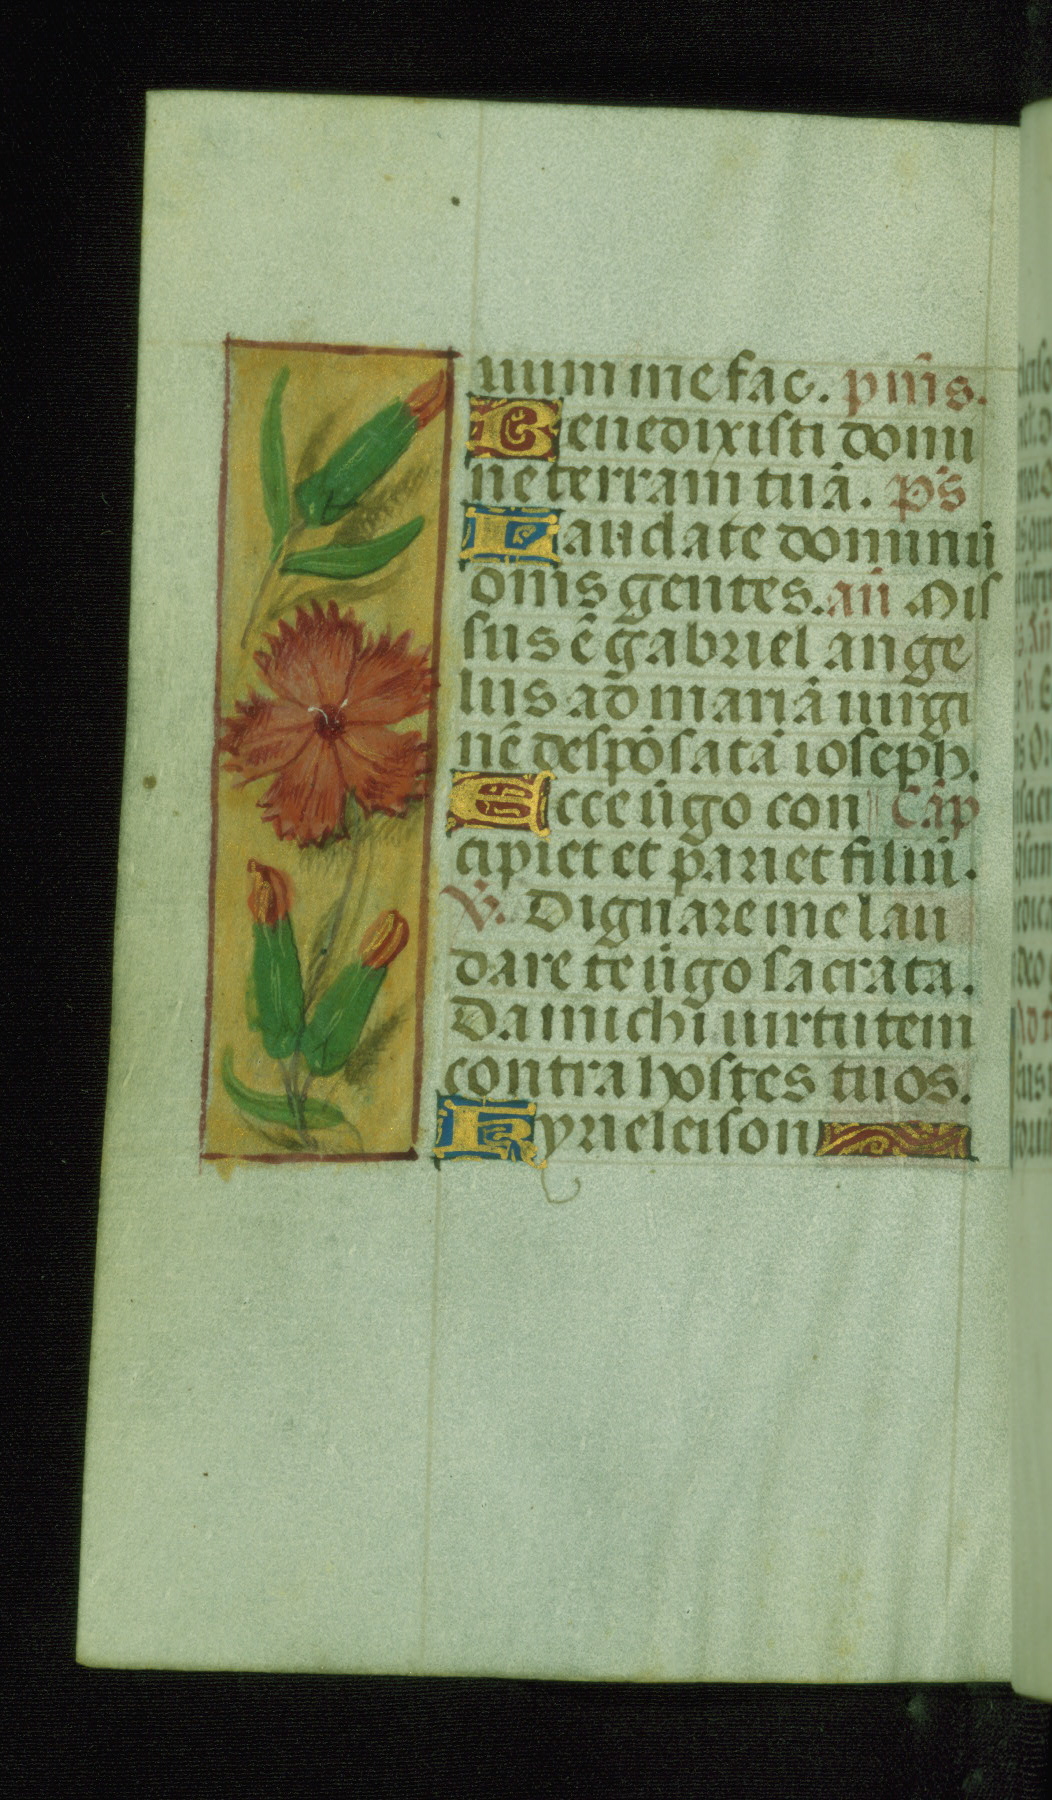 uum me fac. pm̄s.
Benedixisti domi
ne terram tuā. ps̄
Laudate dominū
om̄s gentes. an̄ Mis
sus ē gabriel ange
lus ad mariā uirgi
nē despōsatā ioseph.
Ecce ūgo con Cap̄
cipiet et pariet filiū.
V̄. Dignare me lau
dare te ūgo sacrata.
Da michi uirtutem
contra hostes tuos.
Kyrieleison